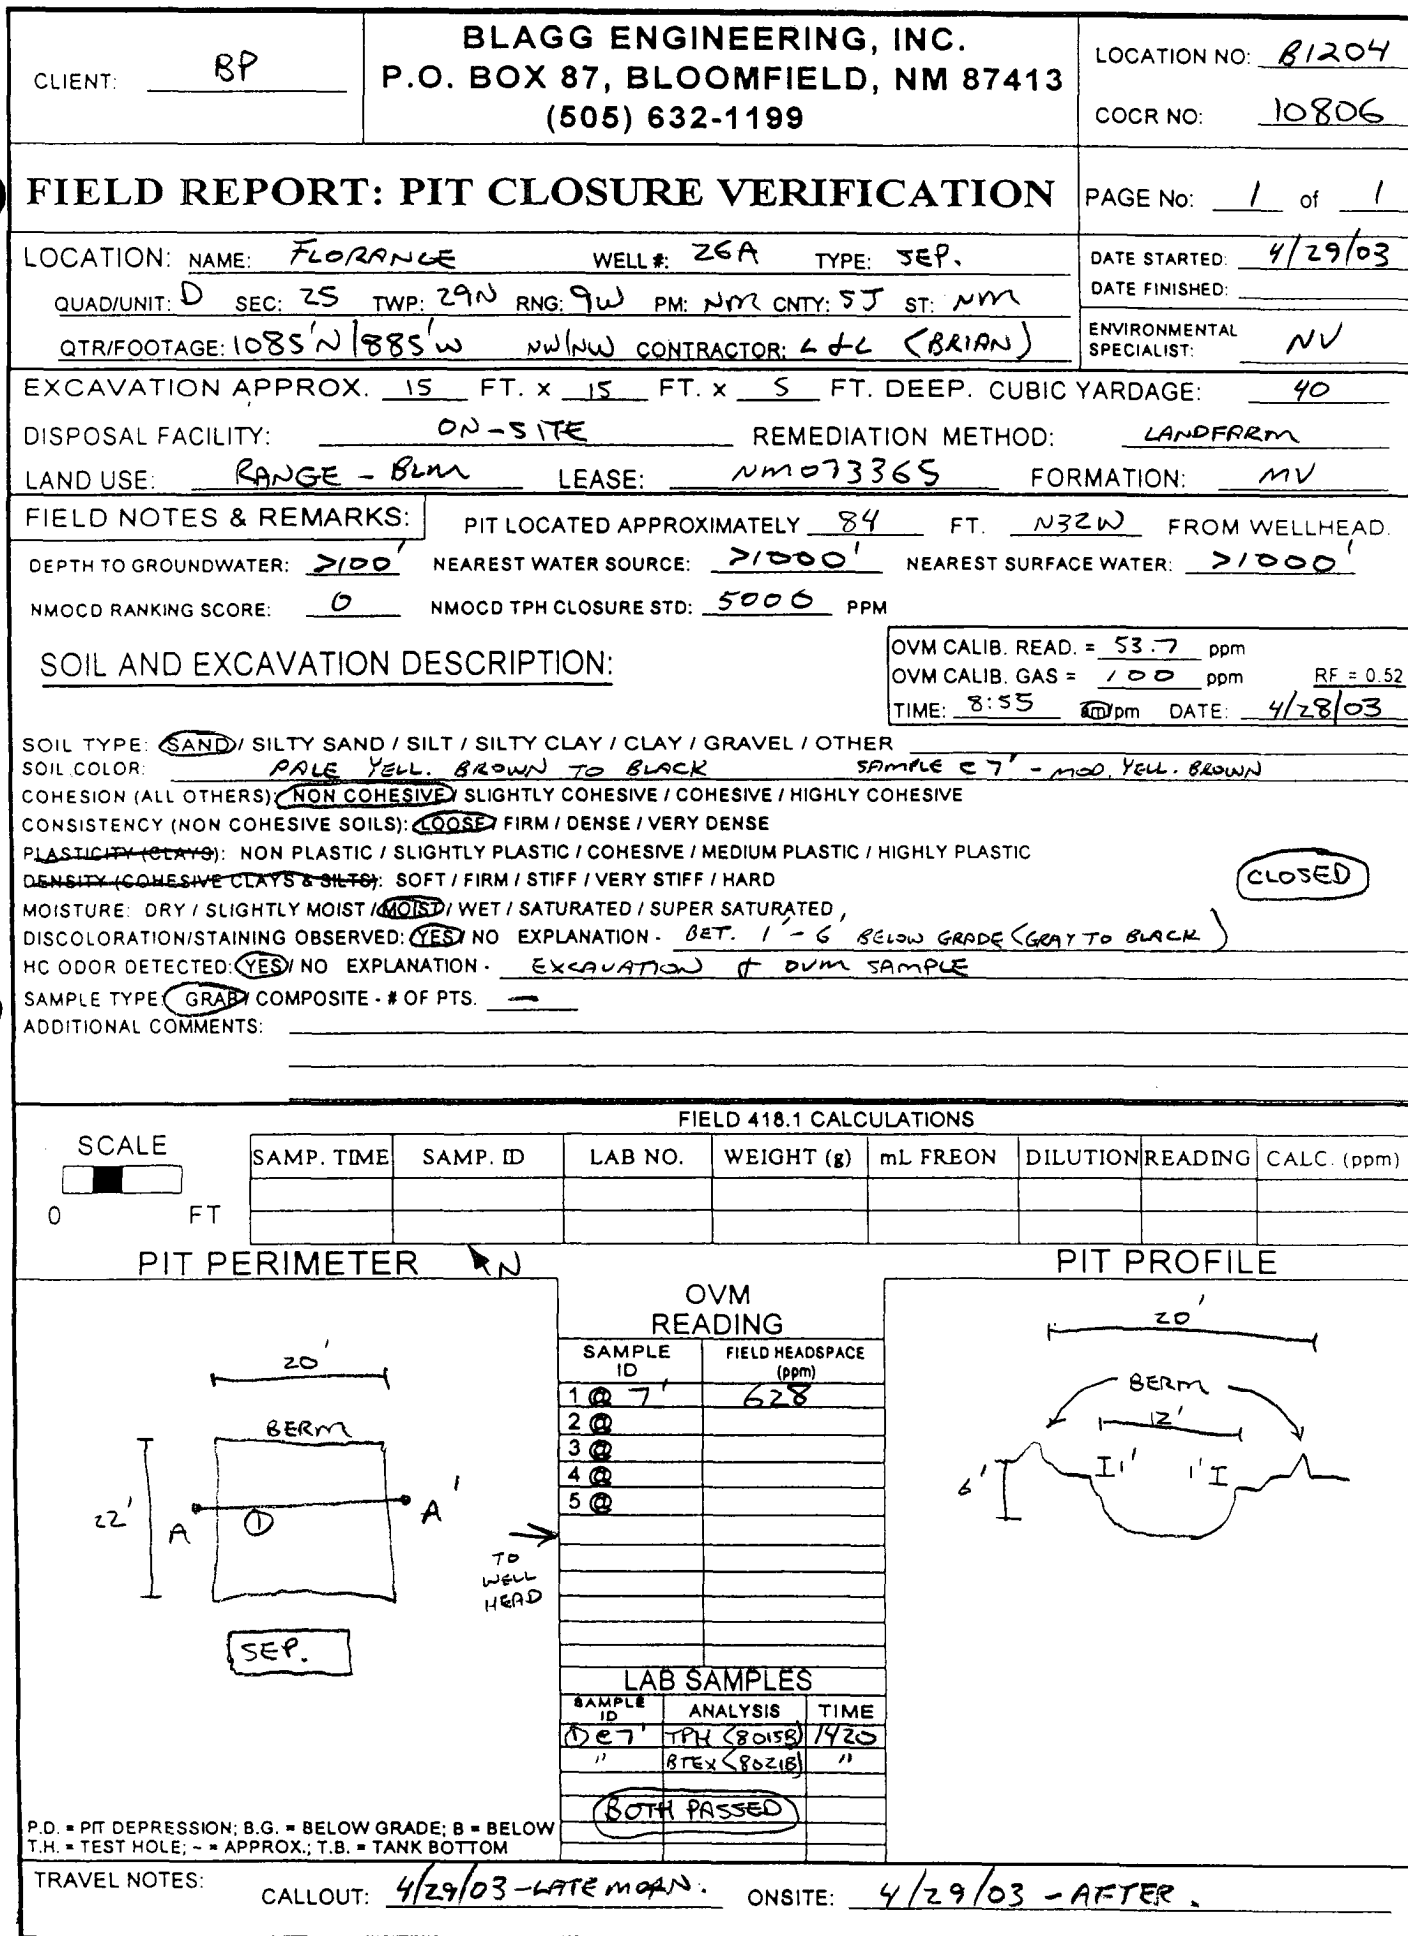 CLIENT: BP
BLAGG ENGINEERING, INC.
P.O. BOX 87, BLOOMFIELD, NM 87413
(505) 632-1199
LOCATION NO: B1204
COCR NO: 10806
FIELD REPORT: PIT CLOSURE VERIFICATION
PAGE No: 1 of 1
LOCATION: NAME: FLORANCE WELL #: 26A TYPE: SEP.
QUAD/UNIT: D SEC: 25 TWP: 29N RNG: 9W PM: NM CNTY: SJ ST: NM
QTR/FOOTAGE: 1085'N/885'W NW/NW CONTRACTOR: L & L (BRIAN)
DATE STARTED: 4/29/03
DATE FINISHED:
ENVIRONMENTAL SPECIALIST: NV
EXCAVATION APPROX. 15 FT. x 15 FT. x 5 FT. DEEP. CUBIC YARDAGE: 40
DISPOSAL FACILITY: ON-SITE REMEDIATION METHOD: LANDFARM
LAND USE: RANGE - BLM LEASE: NM073365 FORMATION: MV
FIELD NOTES & REMARKS: PIT LOCATED APPROXIMATELY 84 FT. N32W FROM WELLHEAD.
DEPTH TO GROUNDWATER: >100' NEAREST WATER SOURCE: >1000' NEAREST SURFACE WATER: >1000'
NMOCD RANKING SCORE: 0 NMOCD TPH CLOSURE STD: 5000 PPM
SOIL AND EXCAVATION DESCRIPTION:
OVM CALIB. READ. = 53.7 ppm
OVM CALIB. GAS = 100 ppm RF = 0.52
TIME: 8:55 am/pm DATE: 4/28/03
SOIL TYPE: SAND / SILTY SAND / SILT / SILTY CLAY / CLAY / GRAVEL / OTHER
SOIL COLOR: PALE YELL. BROWN TO BLACK SAMPLE @ 7' - MOD. YELL. BROWN
COHESION (ALL OTHERS): NON COHESIVE / SLIGHTLY COHESIVE / COHESIVE / HIGHLY COHESIVE
CONSISTENCY (NON COHESIVE SOILS): LOOSE / FIRM / DENSE / VERY DENSE
PLASTICITY (CLAYS): NON PLASTIC / SLIGHTLY PLASTIC / COHESIVE / MEDIUM PLASTIC / HIGHLY PLASTIC
DENSITY (COHESIVE CLAYS & SILTS): SOFT / FIRM / STIFF / VERY STIFF / HARD
CLOSED
MOISTURE: DRY / SLIGHTLY MOIST / MOIST / WET / SATURATED / SUPER SATURATED
DISCOLORATION/STAINING OBSERVED: YES / NO EXPLANATION - BET. 1'-6' BELOW GRADE (GRAY TO BLACK)
HC ODOR DETECTED: YES / NO EXPLANATION - EXCAVATION & OVM SAMPLE
SAMPLE TYPE: GRAB / COMPOSITE - # OF PTS. —
ADDITIONAL COMMENTS:
FIELD 418.1 CALCULATIONS
SCALE
0 FT
SAMP. TIME SAMP. ID LAB NO. WEIGHT (g) mL FREON DILUTION READING CALC. (ppm)
PIT PERIMETER N
20'
BERM
22'
A
1
A'
SEP.
TO
WELL
HEAD
OVM
READING
SAMPLE ID FIELD HEADSPACE (ppm)
1 @ 7' 628
2 @
3 @
4 @
5 @
LAB SAMPLES
SAMPLE ID ANALYSIS TIME
① @ 7' TPH (8015B) 1420
" BTEX (8021B) "
BOTH PASSED
PIT PROFILE
20'
BERM
12'
6'
1' 1'
P.D. = PIT DEPRESSION; B.G. = BELOW GRADE; B = BELOW
T.H. = TEST HOLE; ~ = APPROX.; T.B. = TANK BOTTOM
TRAVEL NOTES: CALLOUT: 4/29/03 - LATE MORN. ONSITE: 4/29/03 - AFTER.